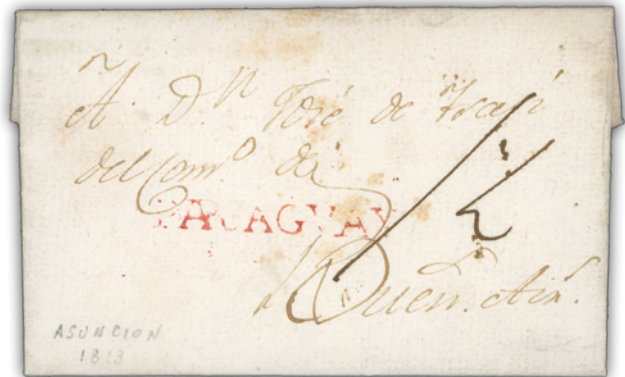 A Dn José de
del Como de
PARAGUAY
1/2
Buens Airs
ASUNCION
1813